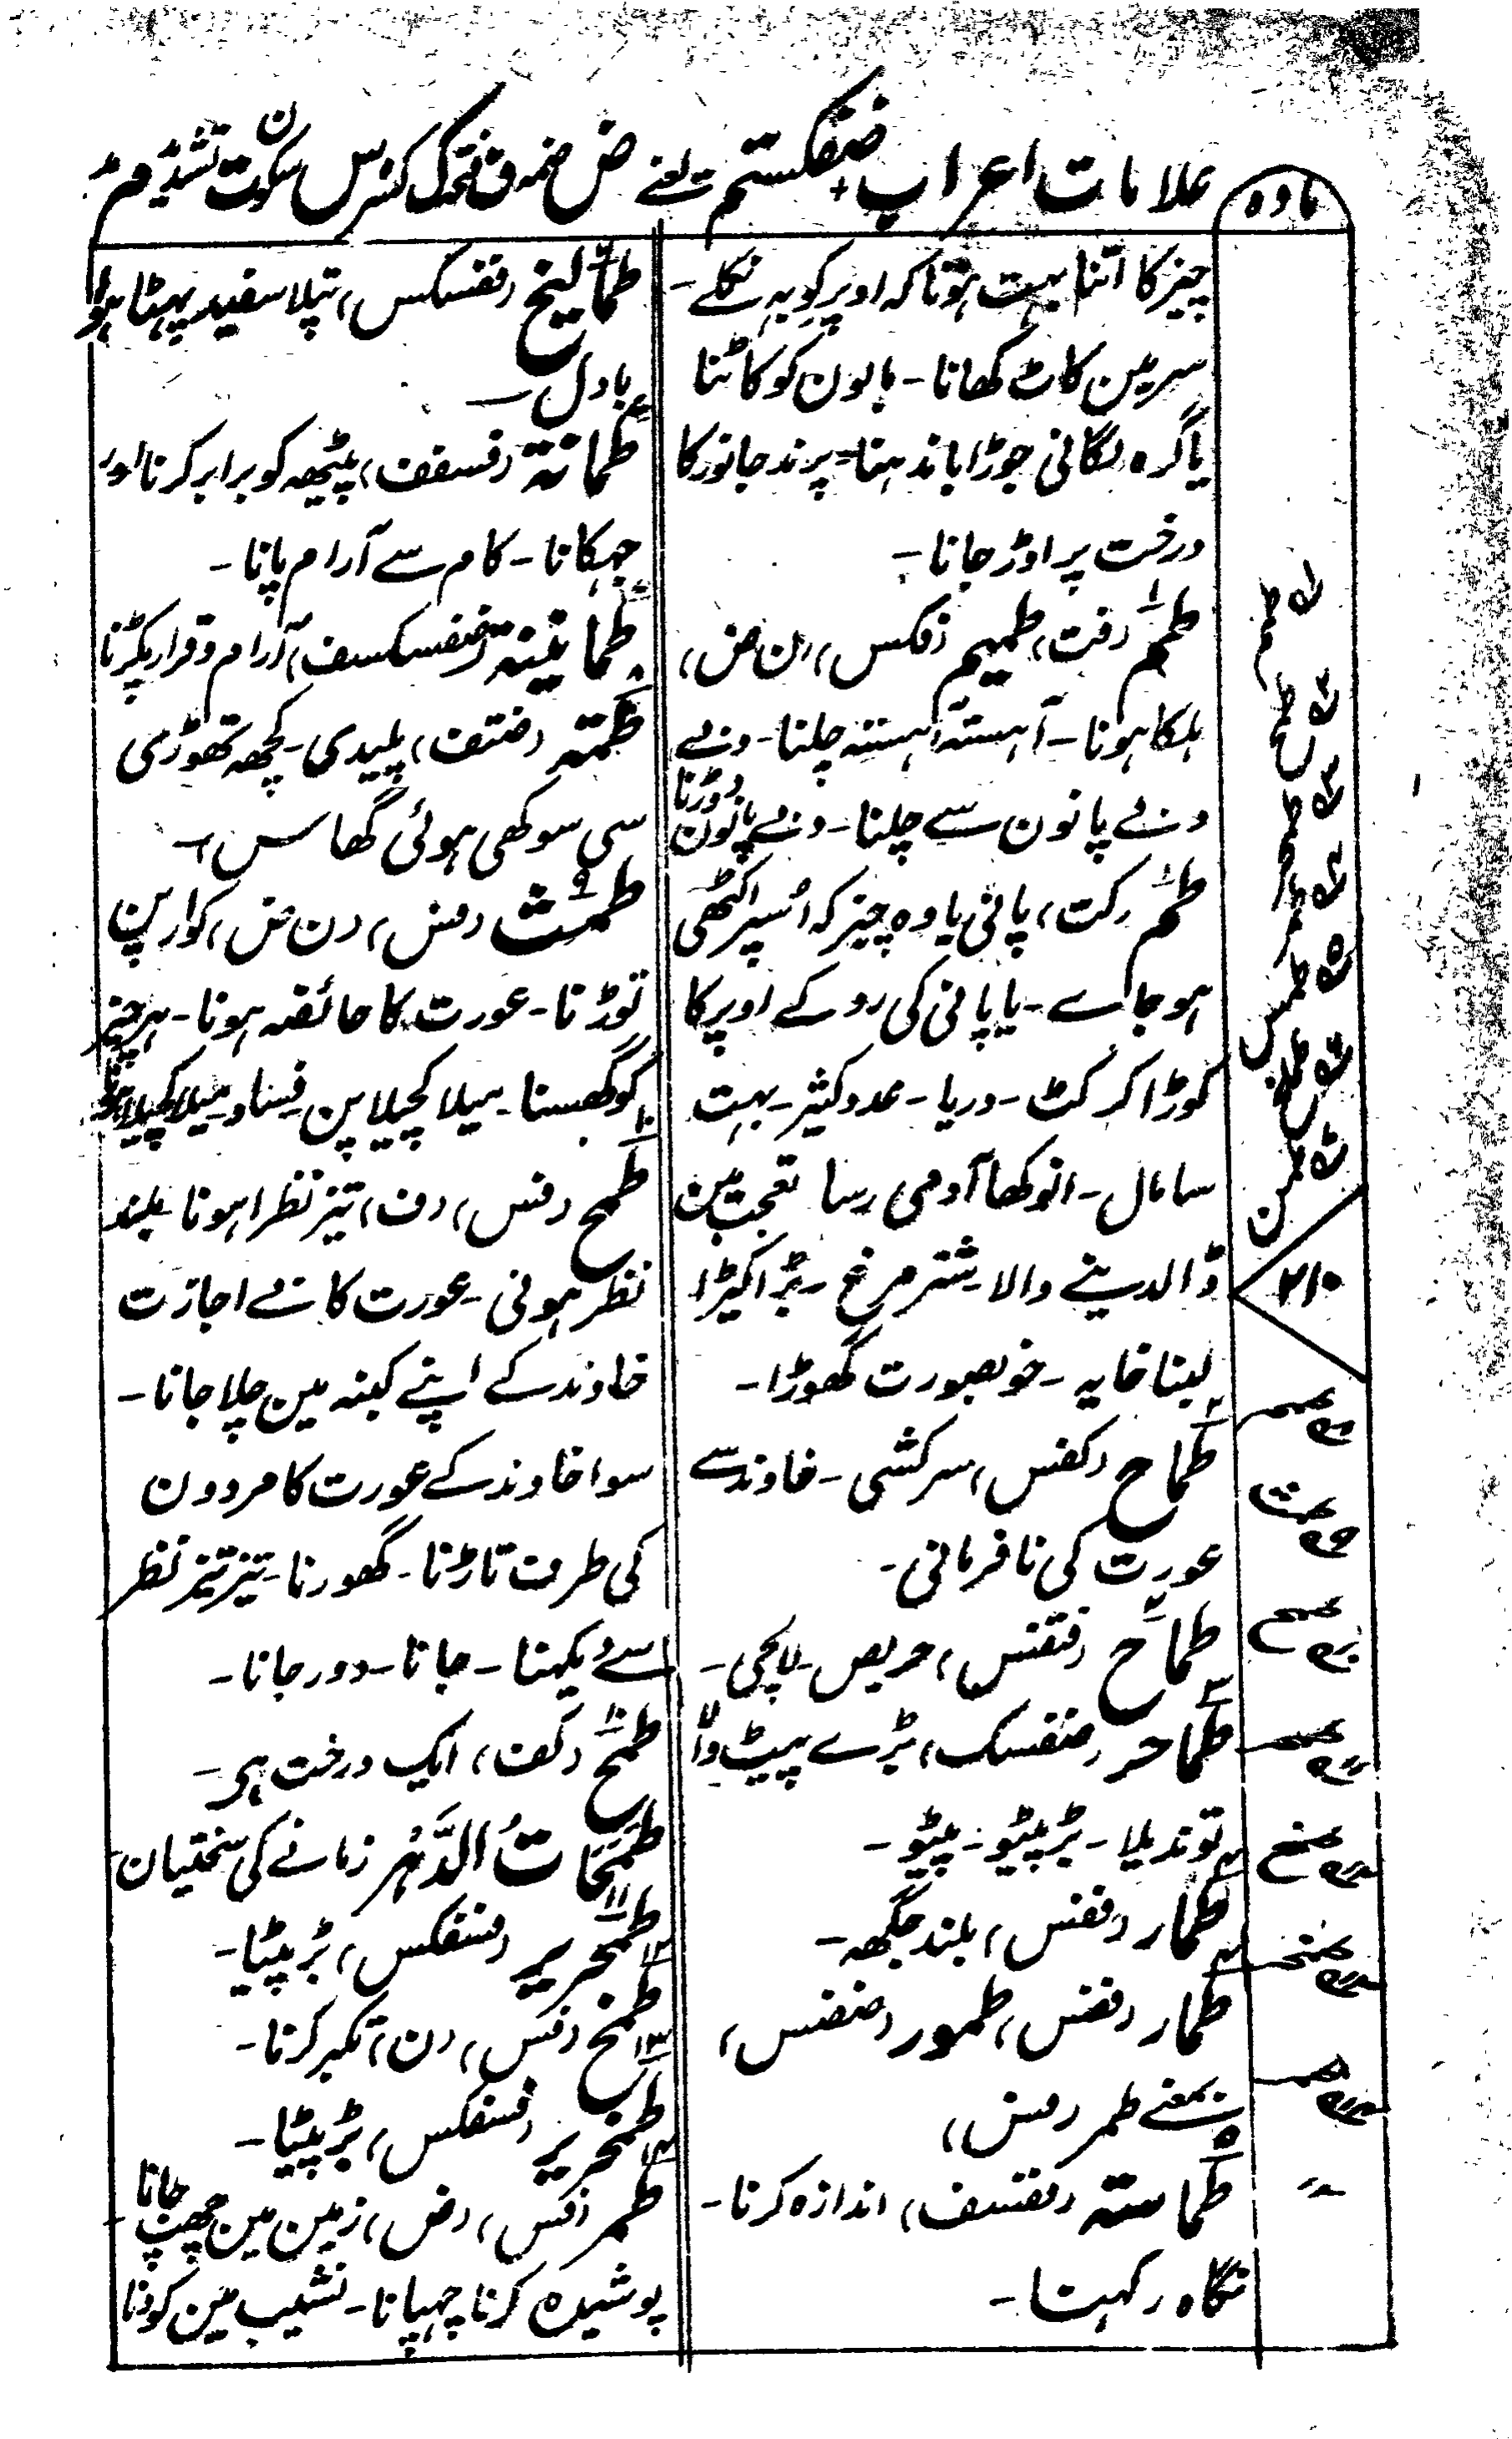 علامات اعراب ضفکستم یعنے ض ضمہ ف فتحہ ک کسر س سکون ت تشدید م مد
مادہ
چیز کا اتنا بہت ہونا کہ اوپر کو بہ نکلے -
سر مین کاٹ کھانا - بالون کو کاٹنا
یا گرہ لگانی جوڑا باندہنا - پرند جانور کا
درخت پر اوڑ جانا -
طم (فت) طمیم (فکس) (ن ض)
ہلکا ہونا - آہستہ آہستہ چلنا - دبے
دبے پانون سے چلنا - دبے پانون دوڑنا
طم (کت) پانی یا وہ چیز کہ اُسپر اکٹھی
ہو جاے - یا پانی کی رو کے اوپر کا
کوڑا کرکٹ - دریا - عدد کثیر - بہت
سا مال - انوکھا آدمی رسا تعجب مین
ڈالدینے والا - شتر مرغ - بڑا کیڑا
لبنا خایہ - خوبصورت گھوڑا -
طماح (کفس) سرکشی - خاوند سے
عورت کی نافرمانی -
طماح (فتفس) حریص - لالچی -
طماحر (ضفسک) بڑے پیٹ والا
توندیلا - بڑپیٹو - پیٹو -
طمار (ففس) بلند جگھہ -
طمار (ففس) طمور (ضضس)
بمعنے طمر (فس)
طماستہ (ففسف) اندازہ کرنا -
نگاہ رکہنا -
طمالیخ (ففسکس) پتلا سفید پھٹا ہوا
بادل -
طمانۃ (فسفف) پیٹھہ کو برابر کرنا اور
جہکانا - کام سے آرام پانا -
طمانینۃ (ضفسکسف) آرام و قرار پکڑنا
طمتہ (ضتف) پلیدی - کچھہ تھوڑی
سی سوکھی ہوئی گھاس -
طمث (فس) (ن ض) کوارپن
توڑنا - عورت کا حائضہ ہونا - ہر چیز
کو گھسنا - میلا کچیلا پن - فساد - میلا کچیلا
طمح (فس) (ف) تیز نظرا ہونا - بلند
نظر ہونی - عورت کا بے اجازت
خاوند کے اپنے کنبہ مین چلا جانا -
سوا خاوند کے عورت کا مردون
کی طرف تاڑنا - گھورنا - تیز تیز نظر
سے دیکہنا - جانا - دور جانا -
طمخ (کف) ایک درخت ہی -
طَمَحَاتُ الدَّہْرِ زمانے کی سختیان
طمحریر (فسفکس) بڑپیٹا -
طمخ (فس) (ن) تکبر کرنا -
طمخریر (فسفکس) بڑپیٹا -
طمر (فس) (ض) زمین مین چھپ جانا -
پوشیدہ کرنا چہپانا - نشیب مین کودنا
طم
طمح
طمس
طمن
۲۱۰